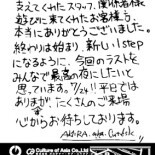 支えてくれたスタッフ、関係者様
遊びに来てくれたお客様方、
本当にありがとうございました。
終わりは始まり、新しい1step
になるように、今回のラストを
みんなで最高の夜にしたいと
思っています。7/29!! 平日では
ありますが、たくさんのご来場
心からお待ちしております。
AKIRA. a.k.a.
Culture of Asia Co.,Ltd